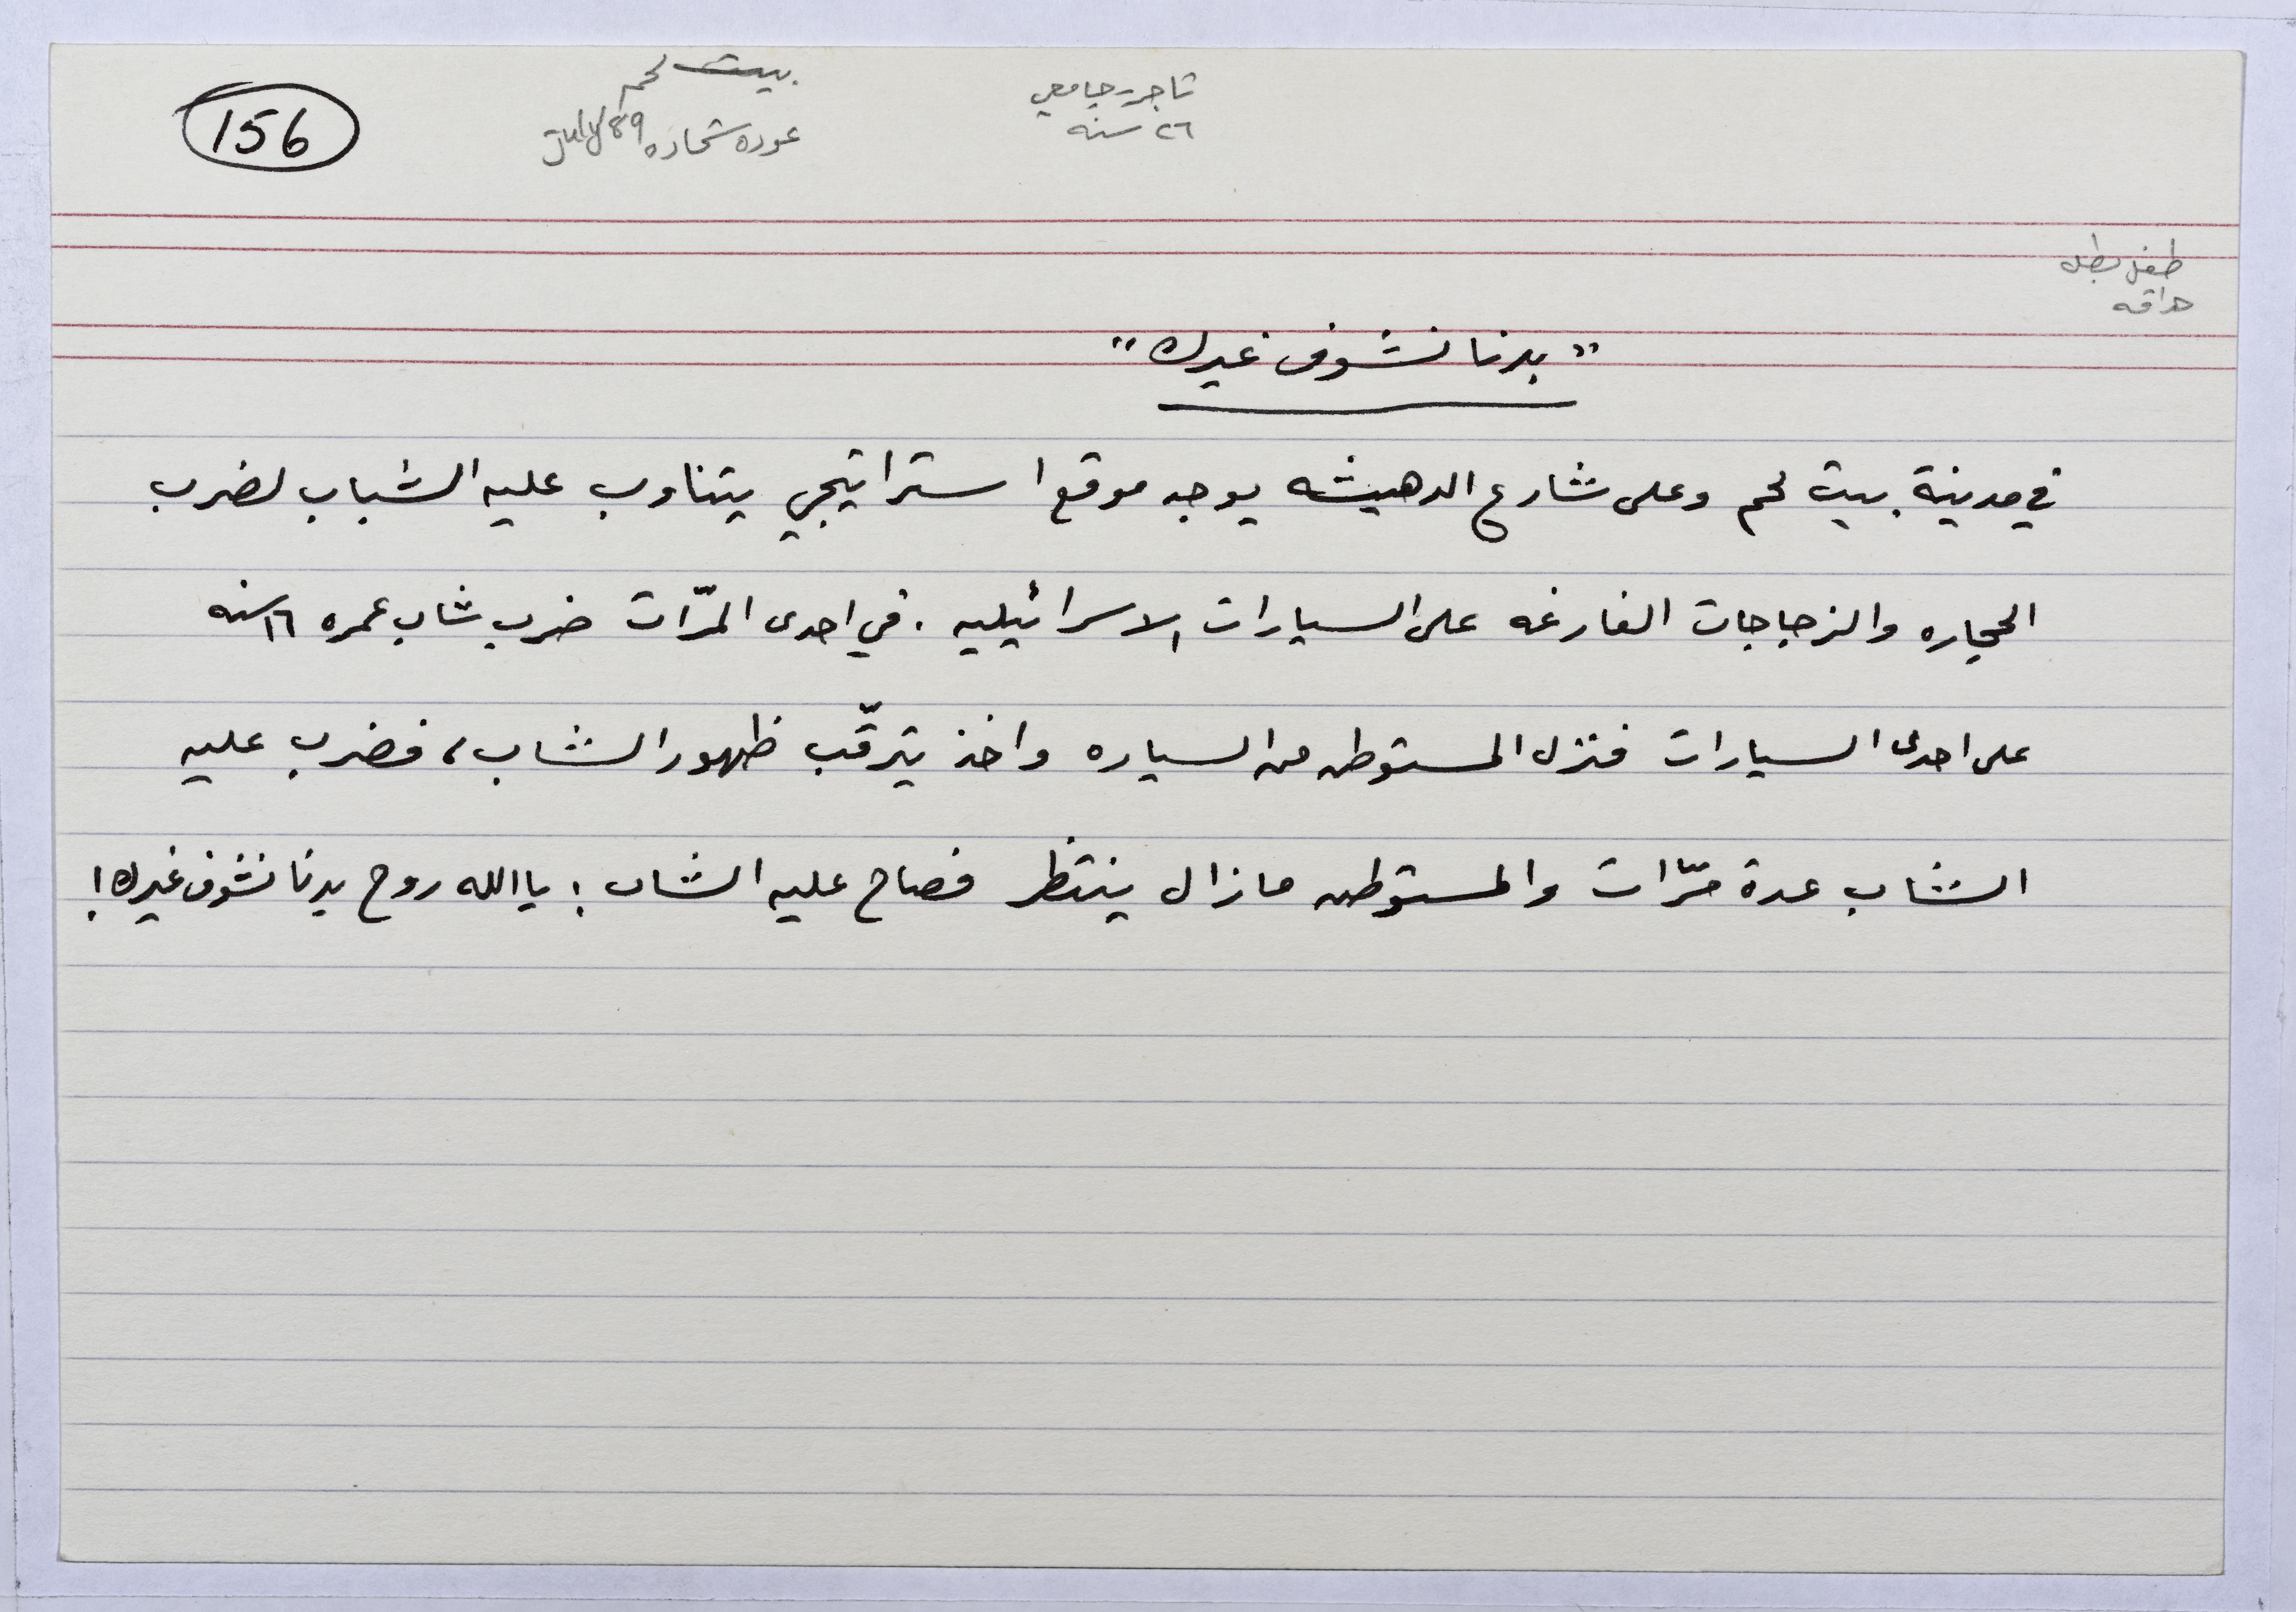 تاجر - جامعي
٢٦ سنه
بيت لحم
عوده شحاده July 89
156
طفل بطل
"بدنا نشوف غيرك"
في مدينة بيت لحم وعلى شارع الدهيشه يوجد موقع استراتيجي يتناوب عليه الشباب لضرب
الحجاره والزجاجات الفارغه على السيارات الاسرائيليه. في احدى المرّات ضرب شاب عمره ١٦ سنه
على احدى السيارات فنزل المستوطن من السياره واخذ يترقّب ظهور الشاب، فضرب عليه
الشاب عدة مرّات والمستوطن مازال ينتظر فصاح عليه الشاب: يا الله روح بدنا نشوف غيرك!